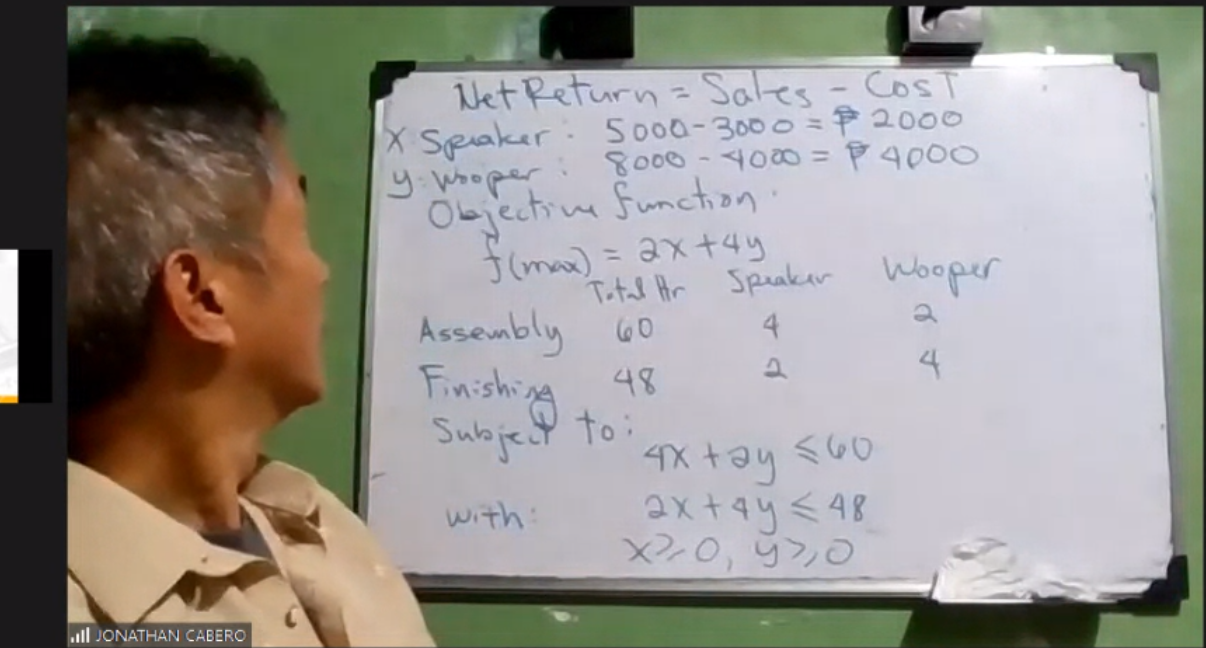 Net Return = Sales - Cost
X Speaker : 5000-3000 = ₱ 2000
y: Wooper : 8000 - 4000 = ₱ 4000
Objective function.
f(max) = 2x+4y
Total Hr Speaker Wooper
Assembly 60 4 2
Finishing 48 2 4
Subject to:
4x + 2y ≤ 60
with: 2x + 4y ≤ 48
x ≥ 0, y ≥ 0
JONATHAN CABERO